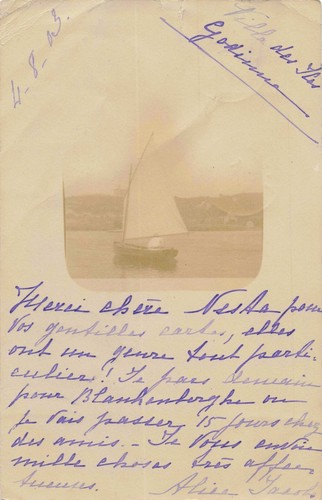 4-8-03.
Villa des Iles
Godinne
Merci chère Nesta pour
vos gentilles cartes, elles
ont un genre tout parti-
culier! Je pars demain
pour Blankenberghe ou
je vais passer 15 jours chez
des amis. - Je vous envoie
mille choses très affec-
tueuses. Alice Jacobs